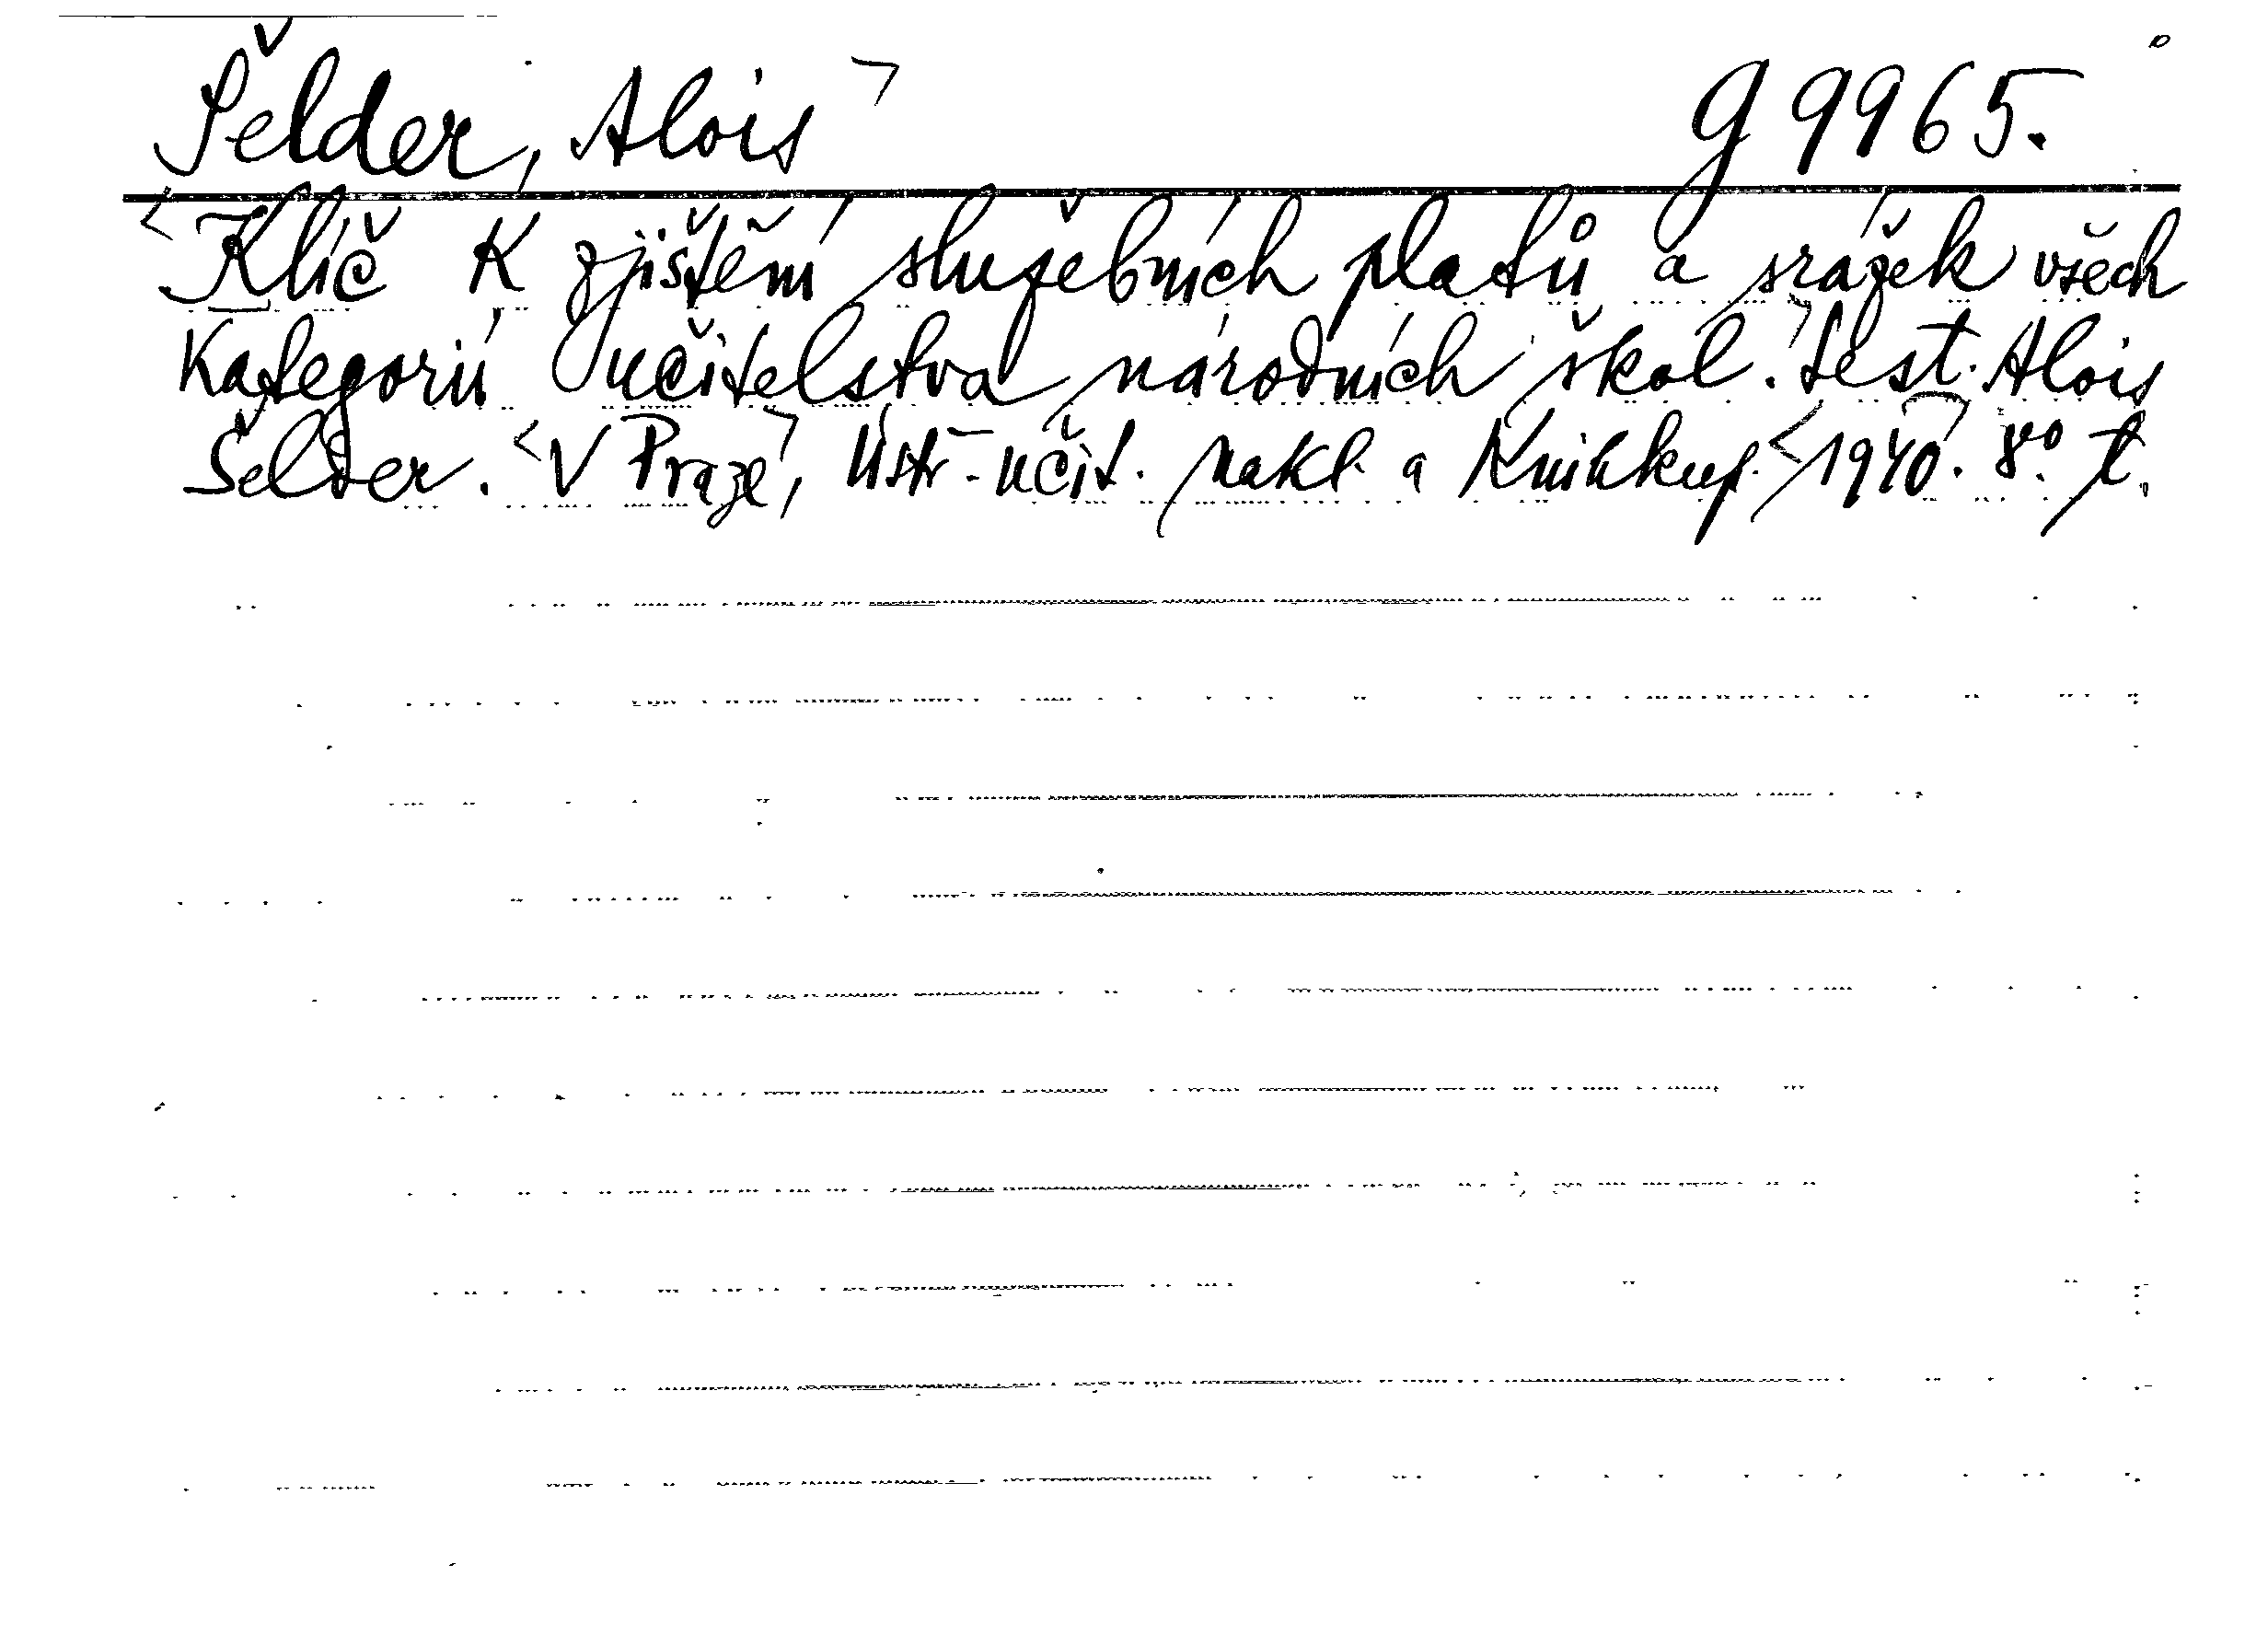 Šelder, Alois g 9965.
Klíč k zjištění služebních platů a srážek všech
kategorií učitelstva národních škol. Sest. Alois
Šelder. V Praze, Ústř. učit. nakl. a knihkup. 1940. 8° t.